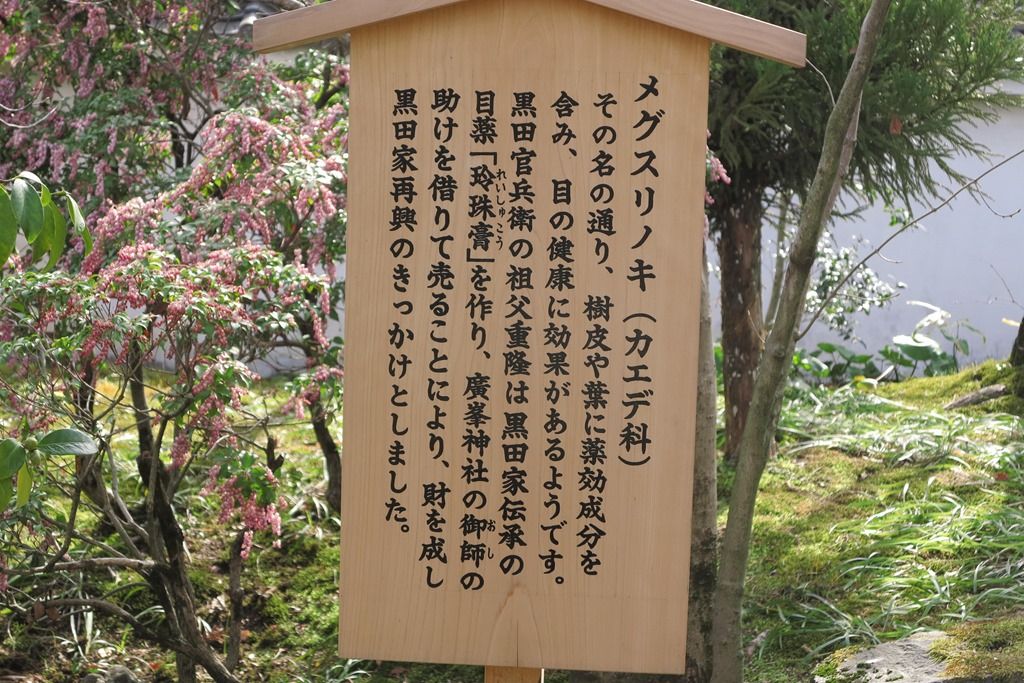 メグスリノキ（カエデ科）
その名の通り、樹皮や葉に薬効成分を
含み、目の健康に効果があるようです。
黒田官兵衛の祖父重隆は黒田家伝承の
目薬「玲珠膏」を作り、廣峯神社の御師の
れいしゅこう
おし
助けを借りて売ることにより、財を成し
黒田家再興のきっかけとしました。